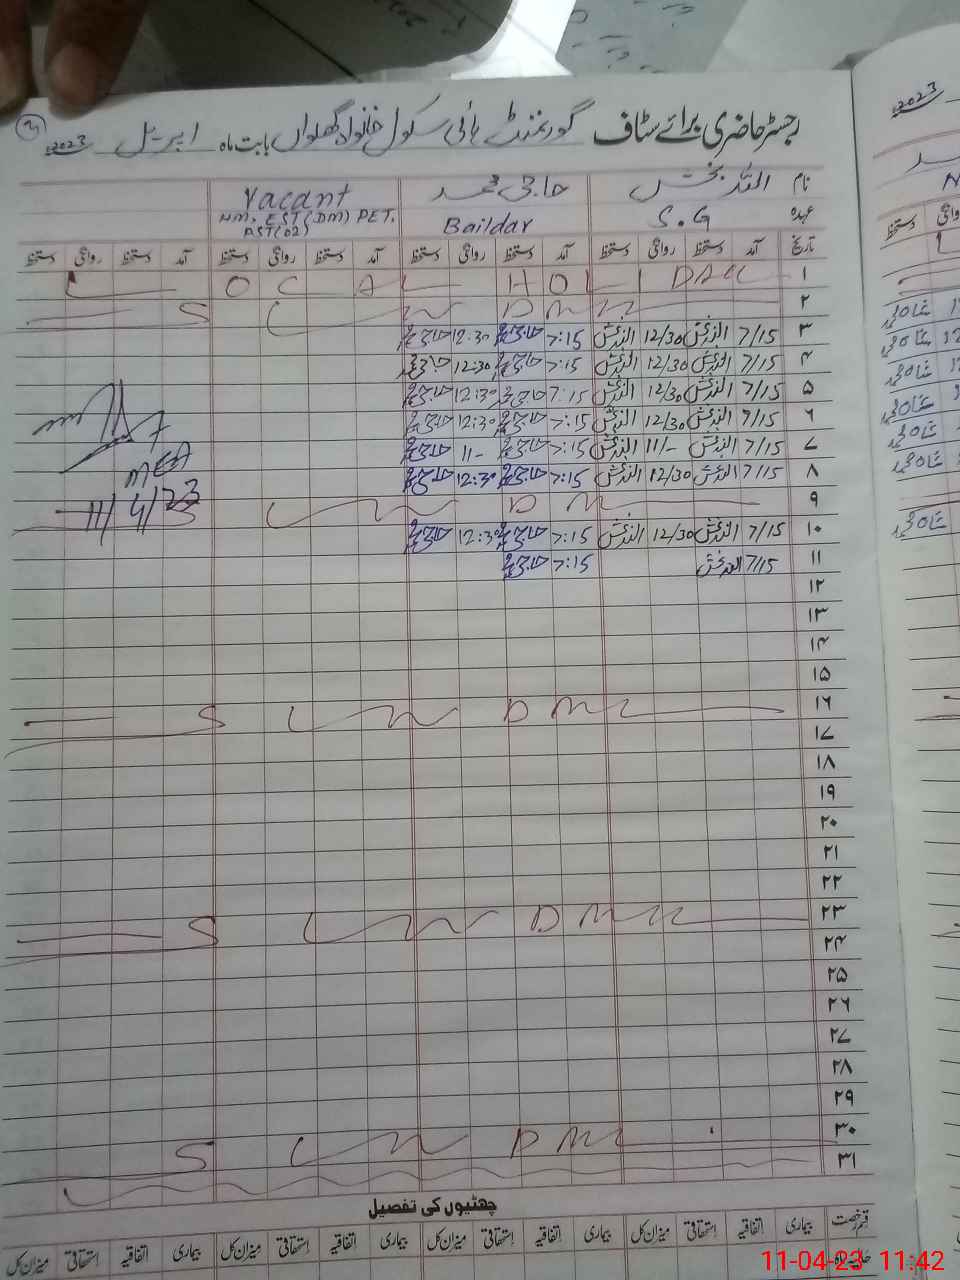 رجسٹر حاضری برائے سٹاف گورنمنٹ ہائی سکول خانواہ گھلواں بابت ماہ اپریل 2023ء
نام اللہ بخش حاجی محمد Vacant
عہدہ S.G Baildar NM. EST(DM) PET. PST(02)
تاریخ آمد دستخط روانگی دستخط آمد دستخط روانگی دستخط آمد دستخط روانگی دستخط آمد دستخط روانگی دستخط
۱ LOCAL HOLIDAY
۲ S U N D A Y
۳ 7/15 اللہ بخش 12/30 اللہ بخش 7:15 حاجی محمد 12:30 حاجی محمد
۴ 7/15 اللہ بخش 12/30 اللہ بخش 7:15 حاجی محمد 12:30 حاجی محمد
۵ 7/15 اللہ بخش 12/30 اللہ بخش 7:15 حاجی محمد 12:30 حاجی محمد
۶ 7/15 اللہ بخش 12/30 اللہ بخش 7:15 حاجی محمد 12:30 حاجی محمد
۷ 7/15 اللہ بخش 11/- اللہ بخش 7:15 حاجی محمد 11- حاجی محمد
۸ 7/15 اللہ بخش 12/30 اللہ بخش 7:15 حاجی محمد 12:30 حاجی محمد
MEA
۹ S U N D A Y
11/4/23
۱۰ 7/15 اللہ بخش 12/30 اللہ بخش 7:15 حاجی محمد 12:30 حاجی محمد
۱۱ 7/15 اللہ بخش 7:15 حاجی محمد
۱۲
۱۳
۱۴
۱۵
۱۶ S U N D A Y
۱۷
۱۸
۱۹
۲۰
۲۱
۲۲
۲۳ S U N D A Y
۲۴
۲۵
۲۶
۲۷
۲۸
۲۹
۳۰ S U N D A Y
۳۱
چھٹیوں کی تفصیل
قسم رخصت بیماری اتفاقیہ استحقاقی میزان کل بیماری اتفاقیہ استحقاقی میزان کل بیماری اتفاقیہ استحقاقی میزان کل بیماری اتفاقیہ استحقاقی میزان کل
11-04-23 11:42